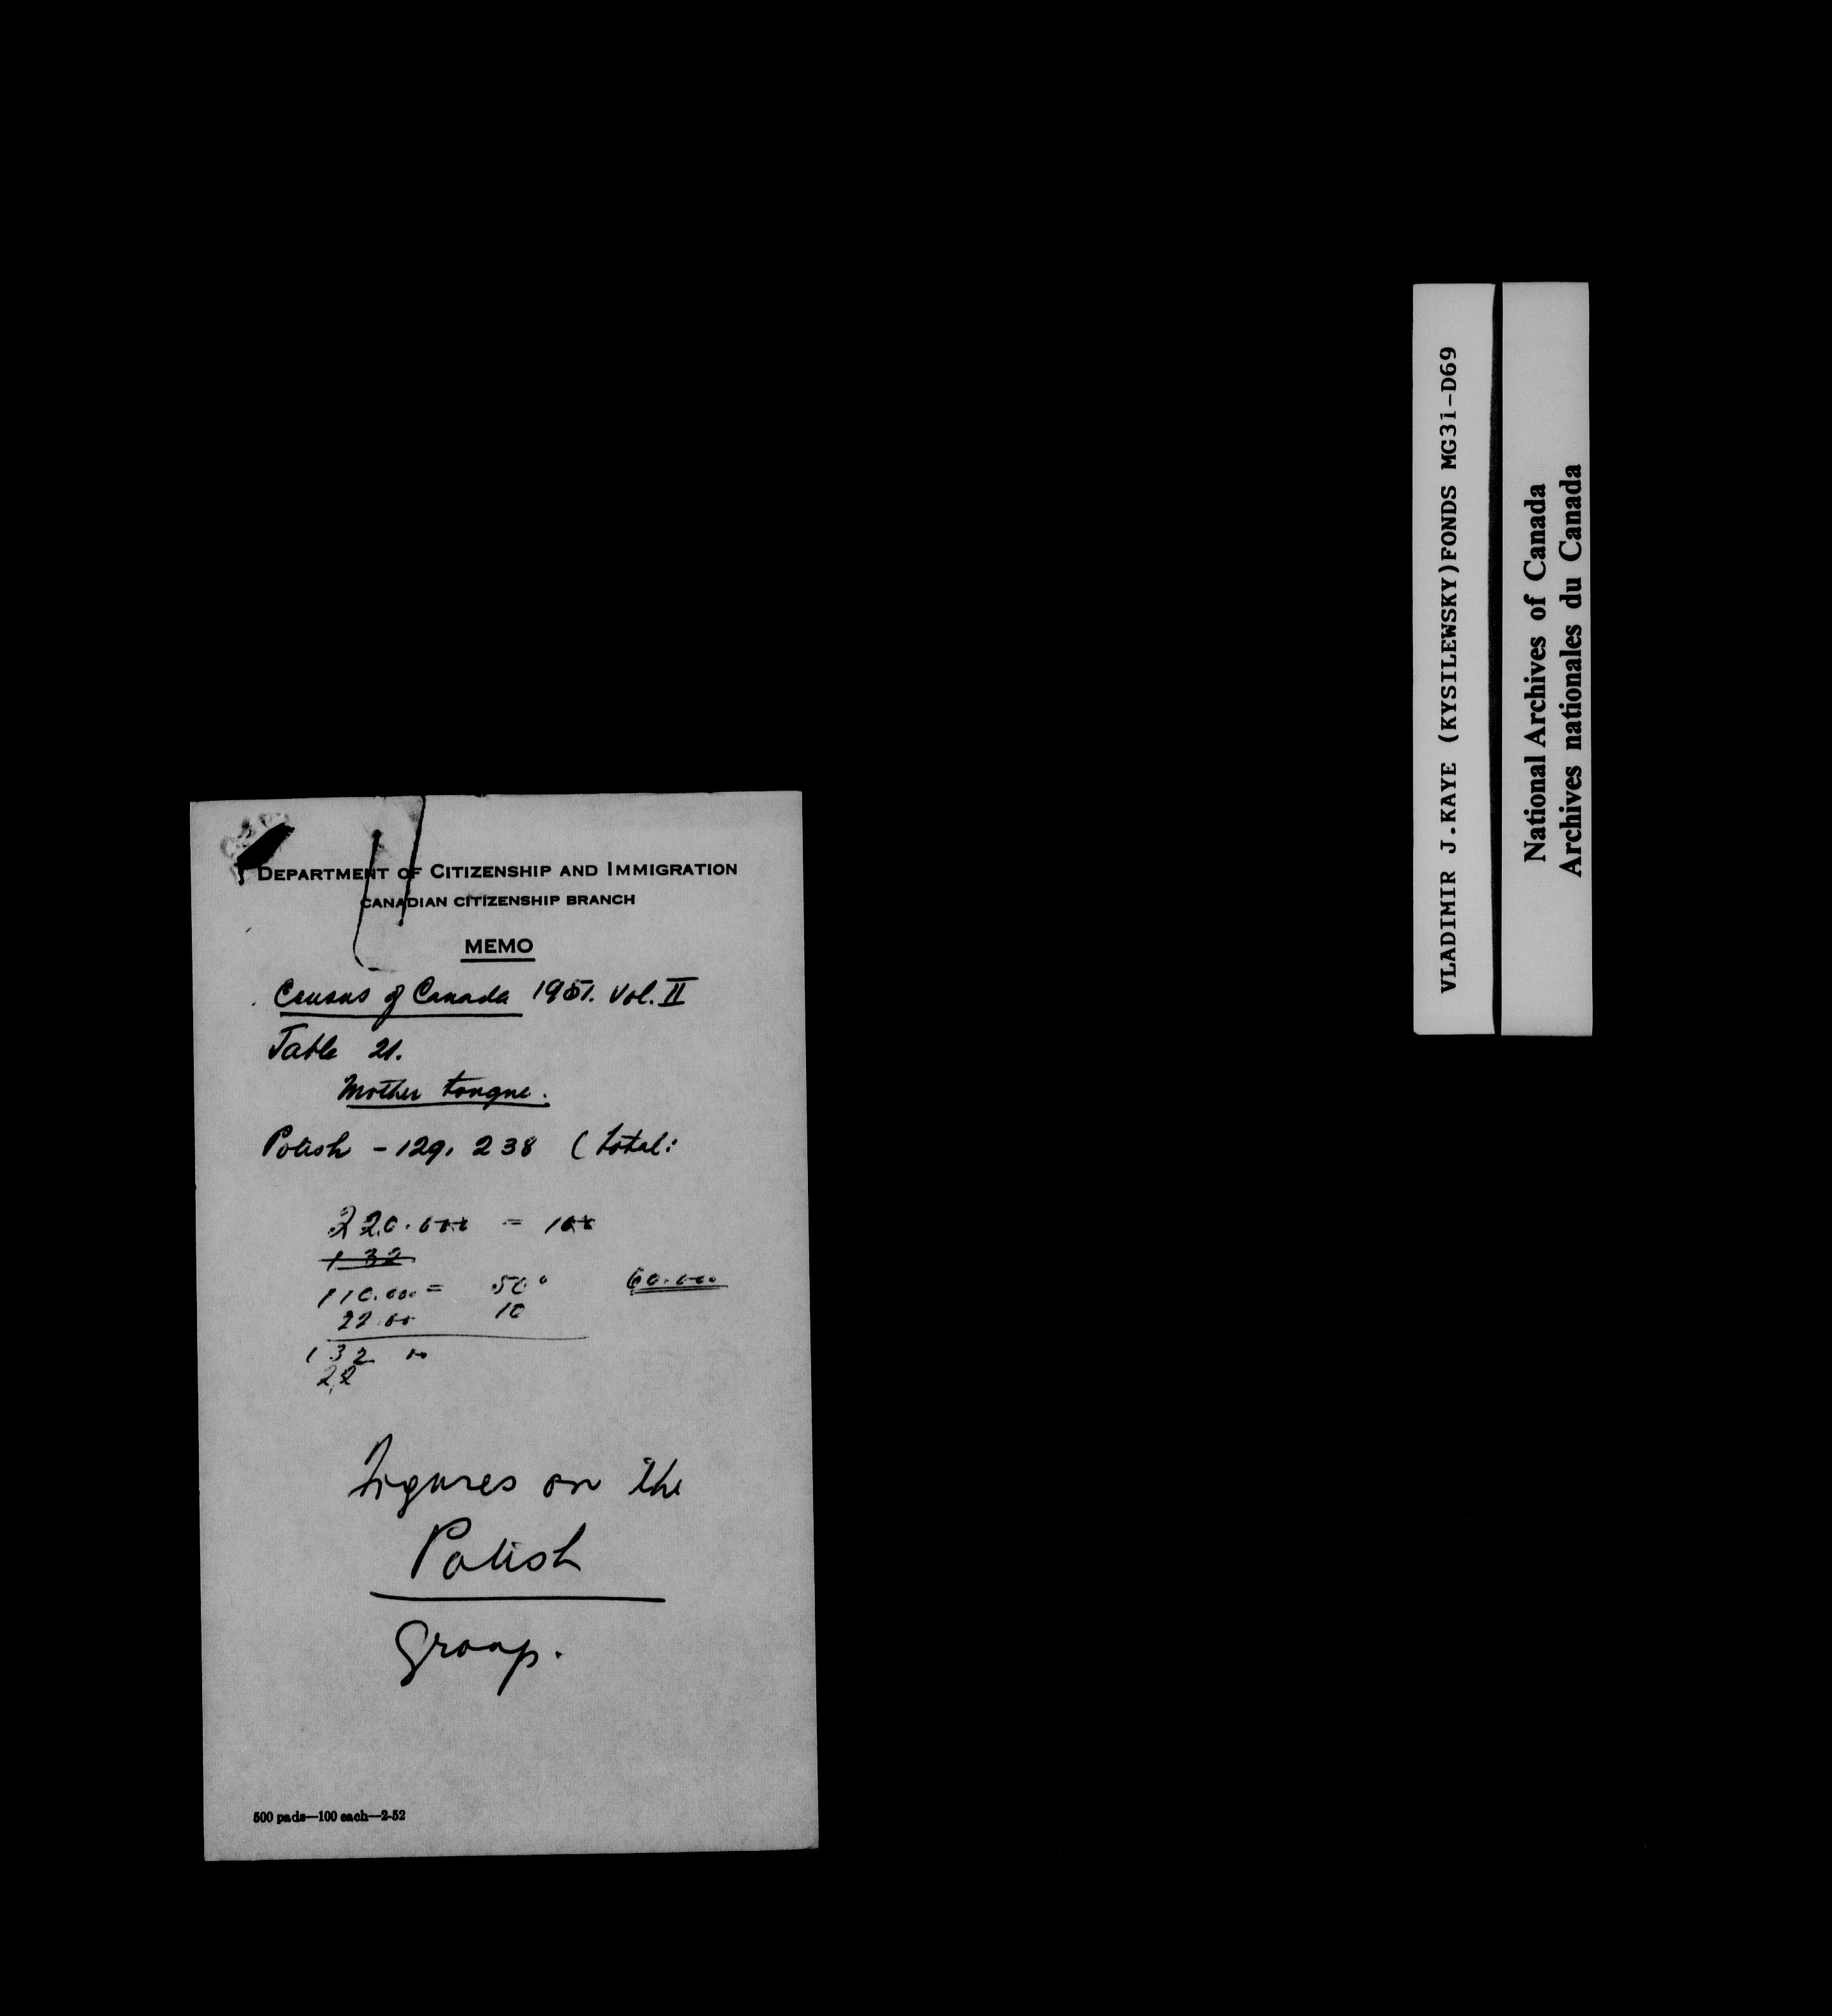 DEPARTMENT OF CITIZENSHIP AND IMMIGRATION
CANADIAN CITIZENSHIP BRANCH
MEMO
Census of Canada 1951. Vol. II
Table 21.
Mother tongue.
Polish - 129. 238 (total:
220.000 = 100
132
110.000 = 50° 60.000
22.00 10
132 00
22
Figures on the
Polish
group.
500 pads—100 each—2-52
VLADIMIR J.KAYE (KYSILEWSKY)FONDS MG31-D69
National Archives of Canada
Archives nationales du Canada